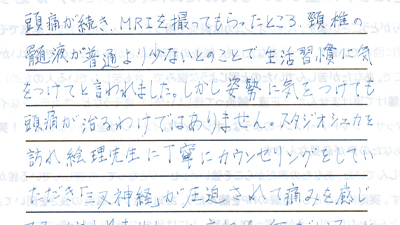 頭痛が続き、MRIを撮ってもらったところ、頚椎の
髄液が普通より少ないとのことで生活習慣に気
をつけてと言われました。しかし姿勢に気をつけても
頭痛が治るわけではありません。スタジオシユカを
訪れ絵理先生に丁寧にカウンセリングをしてい
ただき「三叉神経」が圧迫されて痛みを感じ